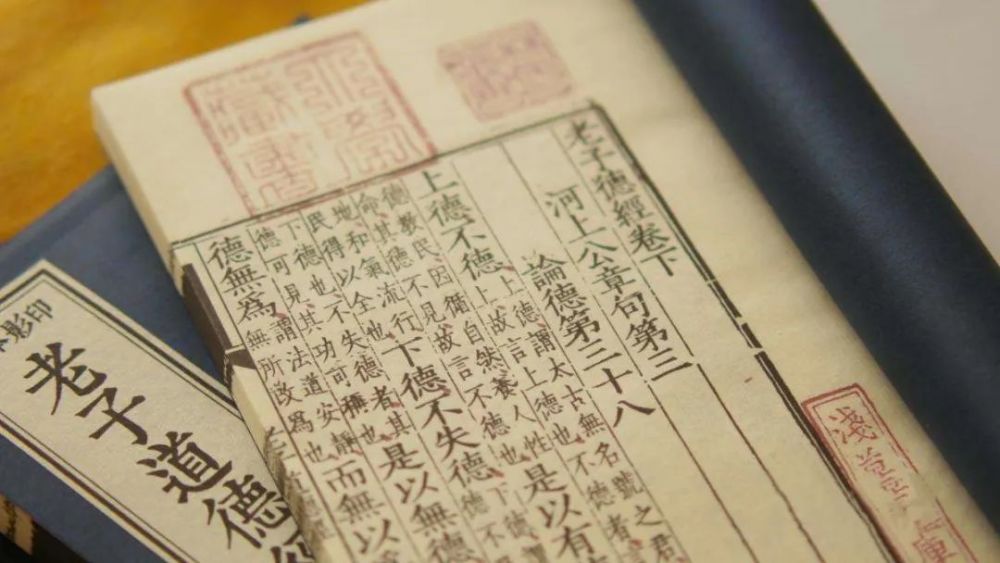 老子德經卷下
河上公章句第三
論德第三十八
上德不德
上德謂太古無名號之君
上故言上德也不德者
德教民因循自然養人性
命其德不見故言不德也
是以有
地和氣流行
民得以全也
下德不失德
下德也不失德者其
德可見其功可稱也
是以無德
德無爲
謂法道安靜
無所改爲也
而無以
影印
老子道德
淺草
庫